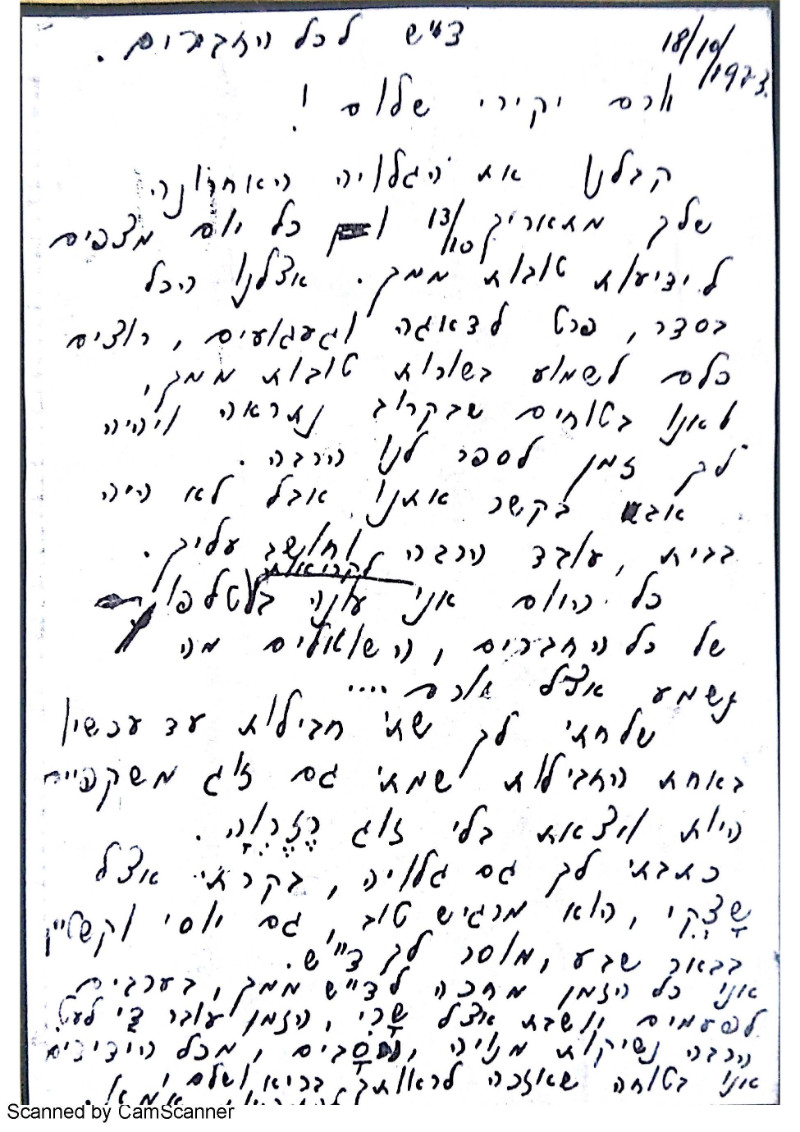 18/10/1973
ד"ש לכל החברים.
יורם יקירי שלום!
קבלנו את הגלויה האחרונה
שלך מתאריך 13/10 כל יום מצפים
לידיעות טובות ממך. אצלנו הכל
בסדר, פרט לדאגה וגעגועים, רוצים
כלם לשמוע בשורות טובות ממך,
אנו בטוחים שבקרוב נתראה ויהיה
לך זמן לספר לנו הרבה.
אבא בקשר אתנו אבל לא היה
בבית, עובד הרבה וחושב עליך.
לקריאות
כל היום אני עונה בטלפון
של כל החברים, השואלים מה
נשמע אצל יורם ....
שלחתי לך שתי חבילות עד עכשיו
באחת החבילות שמתי גם זוג משקפיים
היות ויצאת בלי זוג רֶזֶרְוָה.
כתבתי לך גם גלויה, בקרתי אצל
שָצְקִי, הוא מרגיש טוב, גם יוסי
בבאר שבע, מוסר לך ד"ש.
אני כל הזמן מחכה לד"ש ממך, בערבים
לפעמים יושבת אצל שָרִי, הזמן עובר דַי לְאַט.
הרבה נשיקות מנויה, מכל הידידים
אני בטוחה שאזכה לראותך בריא ושלם,
Scanned by CamScanner